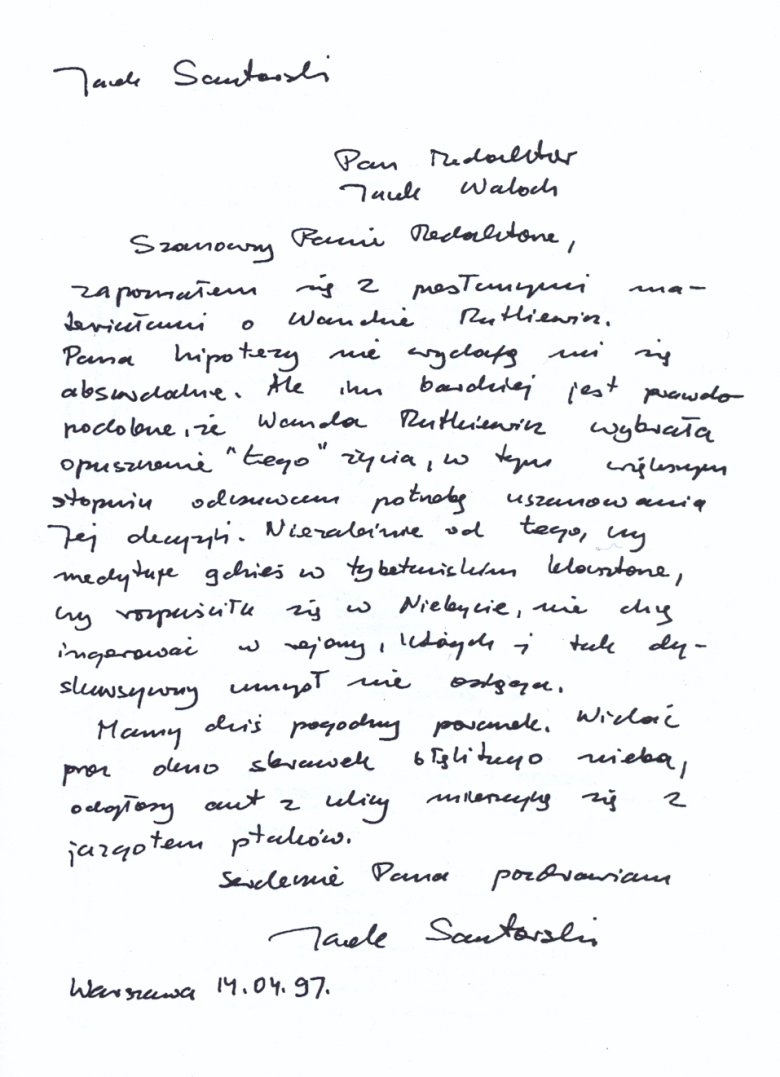 Jacek Santorski
Pan Redaktor
Jacek Waloch
Szanowny Panie Redaktorze,
zapoznałem się z przesłanymi ma-
teriałami o Wandzie Rutkiewicz.
Pana hipotezy nie wydają mi się
absurdalne. Ale im bardziej jest prawdo-
podobne, że Wanda Rutkiewicz wybrała
opuszczenie "tego" życia, w tym większym
stopniu odczuwam potrzebę uszanowania
Jej decyzji. Niezależnie od tego, czy
medytuje gdzieś w tybetańskim klasztorze,
czy rozpuściła się w Niebycie, nie chcę
ingerować w rejony, których i tak dy-
skursywny umysł nie osięga.
Mamy dziś pogodny poranek. Widać
przez okno skrawek błękitnego nieba,
odgłosy aut z ulicy mieszają się z
jazgotem ptaków.
Serdecznie Pana pozdrawiam
Jacek Santorski
Warszawa 14.04.97.